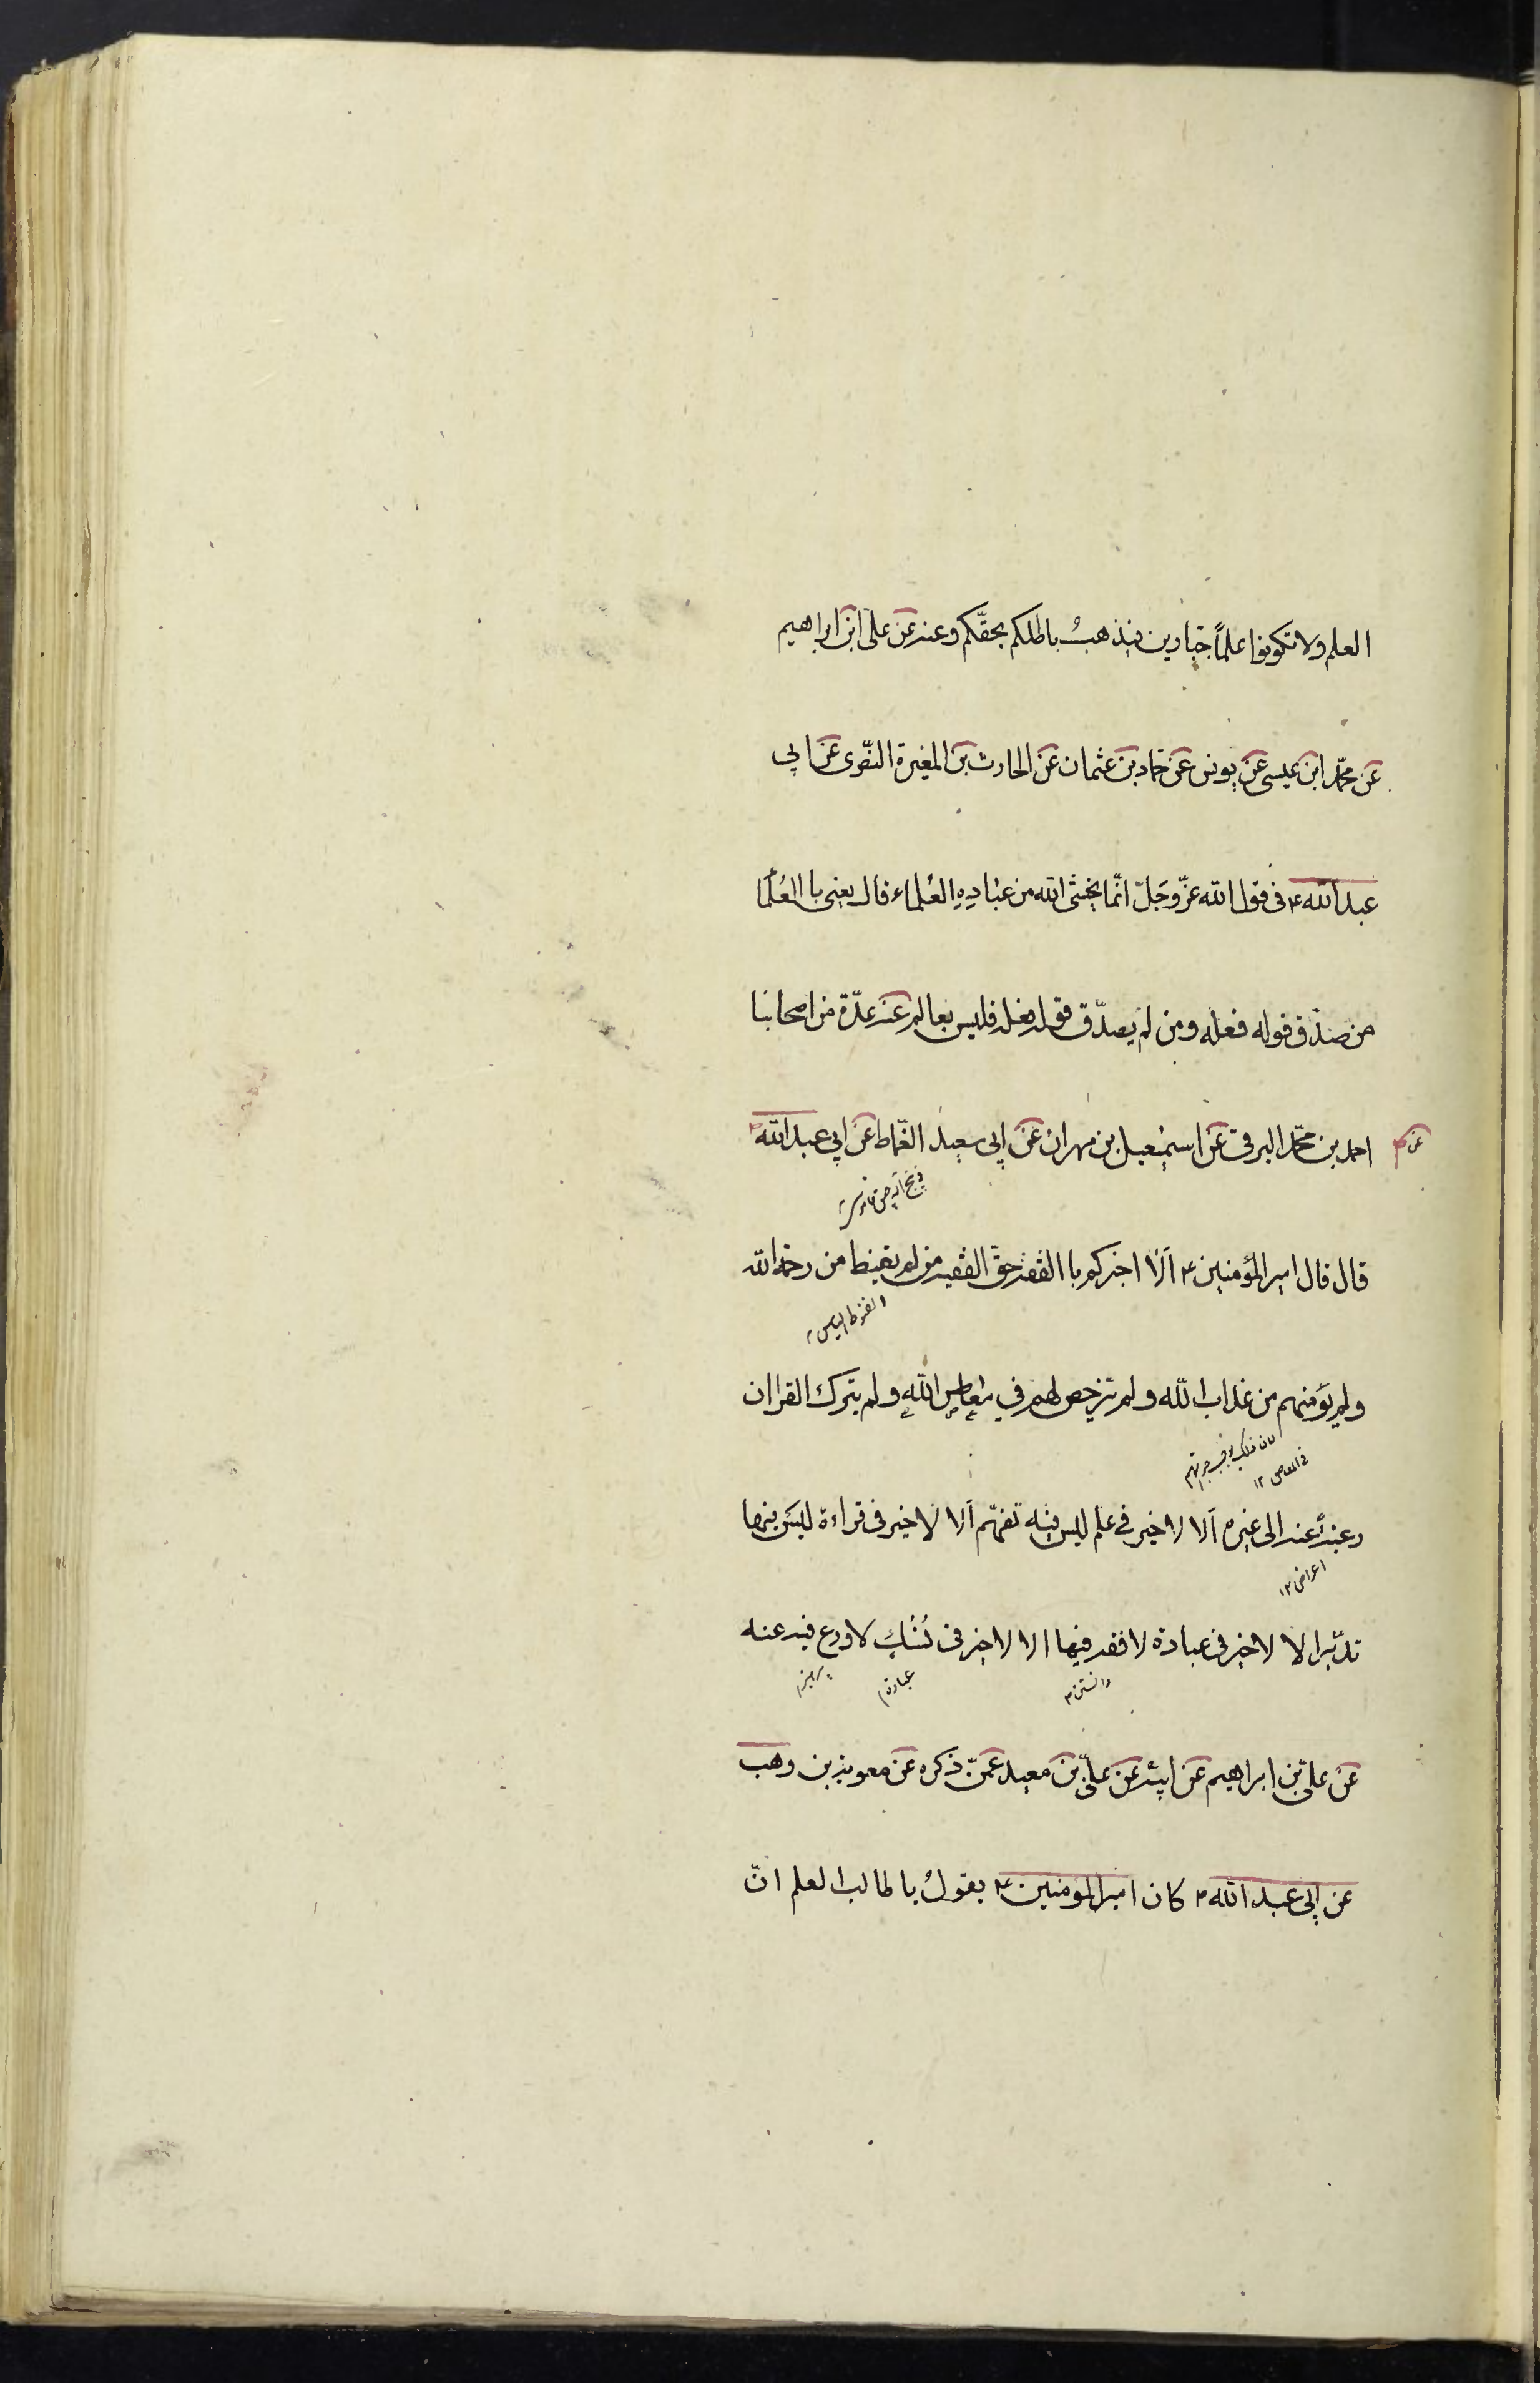 العلم ولا تكونوا علماً جبّارين فيذهبُ باطلكم بحقّكم وعنه عن على ابن ابراهيم
عن محمّد ابن عيسى عن يونس عن حمّاد بن عثمان عن الحارث بن المغيرة النّصرى عن ابى
عبد الله ۴ فى قول الله عزّ وجَلّ انّما يخشى الله من عبادِهِ العُلماء قال يعنى با العُلَما
من صدّق قوله فعله ومن لم يصدّق قوله فعله فليس بعالم عنه عدّة من اصحابنا
عن
احمد بن محمّد البرقى عن اسمٰعيل بن مهران عن ابى سعيد القمّاط عن ابى عبد الله
قال قال امير المؤمنين ۴ اَلَا اخبركم با الفقيه حقّ الفقيه من لم يقنط من رحمة الله
القنوط الياس
ولم يؤمنهم من عذاب الله ولم يترخص لهم في معاصى اللهِ ولم يترك القراان
لان ذلك
فى المعاصى ۱۲
رغبةً عنه الى غيره اَلا لا خير فى علم ليس فيه تفهّم اَلا لا خير فى قراءة ليس فيها
اعراض ۱۲
تدبّر الا لا خير فى عبادة لا فقه فيها الا لا خير فى نُسُكٍ لا ورع فيه عنه
دانستن
عبادة
پرهيز
عن علىّ بن ابراهيم عن ابيه عن علىّ بن معبد عمّن ذكره عن معوية بن وهب
عن ابى عبد الله ۴ كان امير المومنين ۴ يقولُ يا طالب العلم انّ